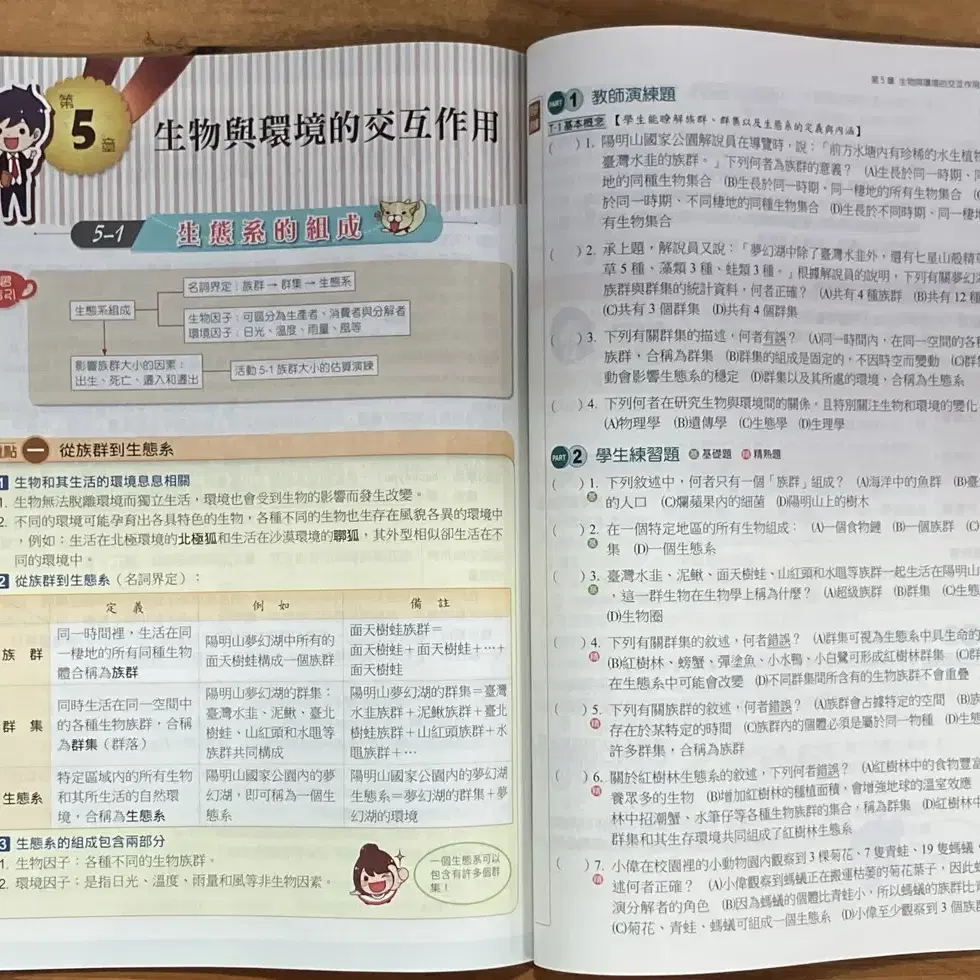 第
5
章
生物與環境的交互作用
5-1 生態系的組成
生態系組成
名詞界定:族群→群集→生態系
生物因子:可區分為生產者、消費者與分解者
環境因子:日光、溫度、雨量、風等
影響族群大小的因素:
出生、死亡、遷入和遷出
活動 5-1 族群大小的估算演練
點 一 從族群到生態系
1 生物和其生活的環境息息相關
1. 生物無法脫離環境而獨立生活,環境也會受到生物的影響而發生改變。
2. 不同的環境可能孕育出各具特色的生物,各種不同的生物也生存在風貌各異的環境中
,例如:生活在北極環境的北極狐和生活在沙漠環境的聊狐,其外型相似卻生活在不
同的環境中。
2 從族群到生態系(名詞界定):
定義 例如 備註
族群
同一時間裡,生活在同
一棲地的所有同種生物
體合稱為族群
陽明山夢幻湖中所有的
面天樹蛙構成一個族群
面天樹蛙族群=
面天樹蛙+面天樹蛙+…+
面天樹蛙
群集
同時生活在同一空間中
的各種生物族群,合稱
為群集(群落)
陽明山夢幻湖的群集:
臺灣水韭、泥鰍、臺北
樹蛙、山紅頭和水黽等
族群共同構成
陽明山夢幻湖的群集=臺灣
水韭族群+泥鰍族群+臺北
樹蛙族群+山紅頭族群+水
黽族群+…
生態系
特定區域內的所有生物
和其所生活的自然環
境,合稱為生態系
陽明山國家公園內的夢
幻湖,即可稱為一個生
態系
陽明山國家公園內的夢幻湖
生態系=夢幻湖的群集+夢
幻湖的環境
3 生態系的組成包含兩部分
1. 生物因子:各種不同的生物族群。
2. 環境因子:是指日光、溫度、雨量和風等非生物因素。
一個生態系可以
包含有許多個群
集!
第 5 章 生物與環境的交互作用
PART 1 教師演練題
T-1 基本概念【學生能瞭解族群、群集以及生態系的定義與內涵】
( ) 1. 陽明山國家公園解說員在導覽時,說:「前方水塘內有珍稀的水生植物
臺灣水韭的族群。」下列何者為族群的意義? (A)生長於同一時期、同
地的同種生物集合 (B)生長於同一時期、同一棲地的所有生物集合
於同一時期、不同棲地的同種生物集合 (D)生長於不同時期、同一棲
有生物集合
( ) 2. 承上題,解說員又說:「夢幻湖中除了臺灣水韭外,還有七星山穀精草
草 5 種、藻類 3 種、蛙類 3 種。」根據解說員的說明,下列有關夢幻湖
族群與群集的統計資料,何者正確? (A)共有 4 種族群 (B)共有 12 種
(C)共有 3 個群集 (D)共有 4 個群集
( ) 3. 下列有關群集的描述,何者有誤? (A)同一時間內,在同一空間的各種
族群,合稱為群集 (B)群集的組成是固定的,不因時空而變動 (C)群
動會影響生態系的穩定 (D)群集以及其所處的環境,合稱為生態系
( ) 4. 下列何者在研究生物與環境間的關係,且特別關注生物和環境的變化
(A)物理學 (B)遺傳學 (C)生態學 (D)生理學
PART 2 學生練習題 基 基礎題 精 精熟題
( ) 1. 下列敘述中,何者只有一個「族群」組成? (A)海洋中的魚群 (B)臺
基 的人口 (C)爛蘋果內的細菌 (D)陽明山上的樹木
( ) 2. 在一個特定地區的所有生物組成: (A)一個食物鏈 (B)一個族群 (C)
基 集 (D)一個生態系
( ) 3. 臺灣水韭、泥鰍、面天樹蛙、山紅頭和水黽等族群一起生活在陽明山
基 ,這一群生物在生物學上稱為什麼? (A)超級族群 (B)群集 (C)生態
(D)生物圈
( ) 4. 下列有關群集的敘述,何者錯誤? (A)群集可視為生態系中具生命的
精 (B)紅樹林、螃蟹、彈塗魚、小水鴨、小白鷺可形成紅樹林群集 (C)群
在生態系中可能會改變 (D)不同群集間所含有的生物族群不會重疊
( ) 5. 下列有關族群的敘述,何者錯誤? (A)族群會占據特定的空間 (B)族
精 存在於某特定的時間 (C)族群內的個體必須是屬於同一物種 (D)生態
許多群集,合稱為族群
( ) 6. 關於紅樹林生態系的敘述,下列何者錯誤? (A)紅樹林中的食物豐富
精 養眾多的生物 (B)增加紅樹林的種植面積,會增強地球的溫室效應
林中招潮蟹、水筆仔等各種生物族群的集合,稱為群集 (D)紅樹林中
群集和其生存環境共同組成了紅樹林生態系
( ) 7. 小偉在校園裡的小動物園內觀察到 3 棵菊花、7 隻青蛙、19 隻螞蟻,
精 述何者正確? (A)小偉觀察到螞蟻正在搬運枯萎的菊花葉子,因此螞
演分解者的角色 (B)因為螞蟻的個體比青蛙小,所以螞蟻的族群比青
(C)菊花、青蛙、螞蟻可組成一個生態系 (D)小偉至少觀察到 3 個族群